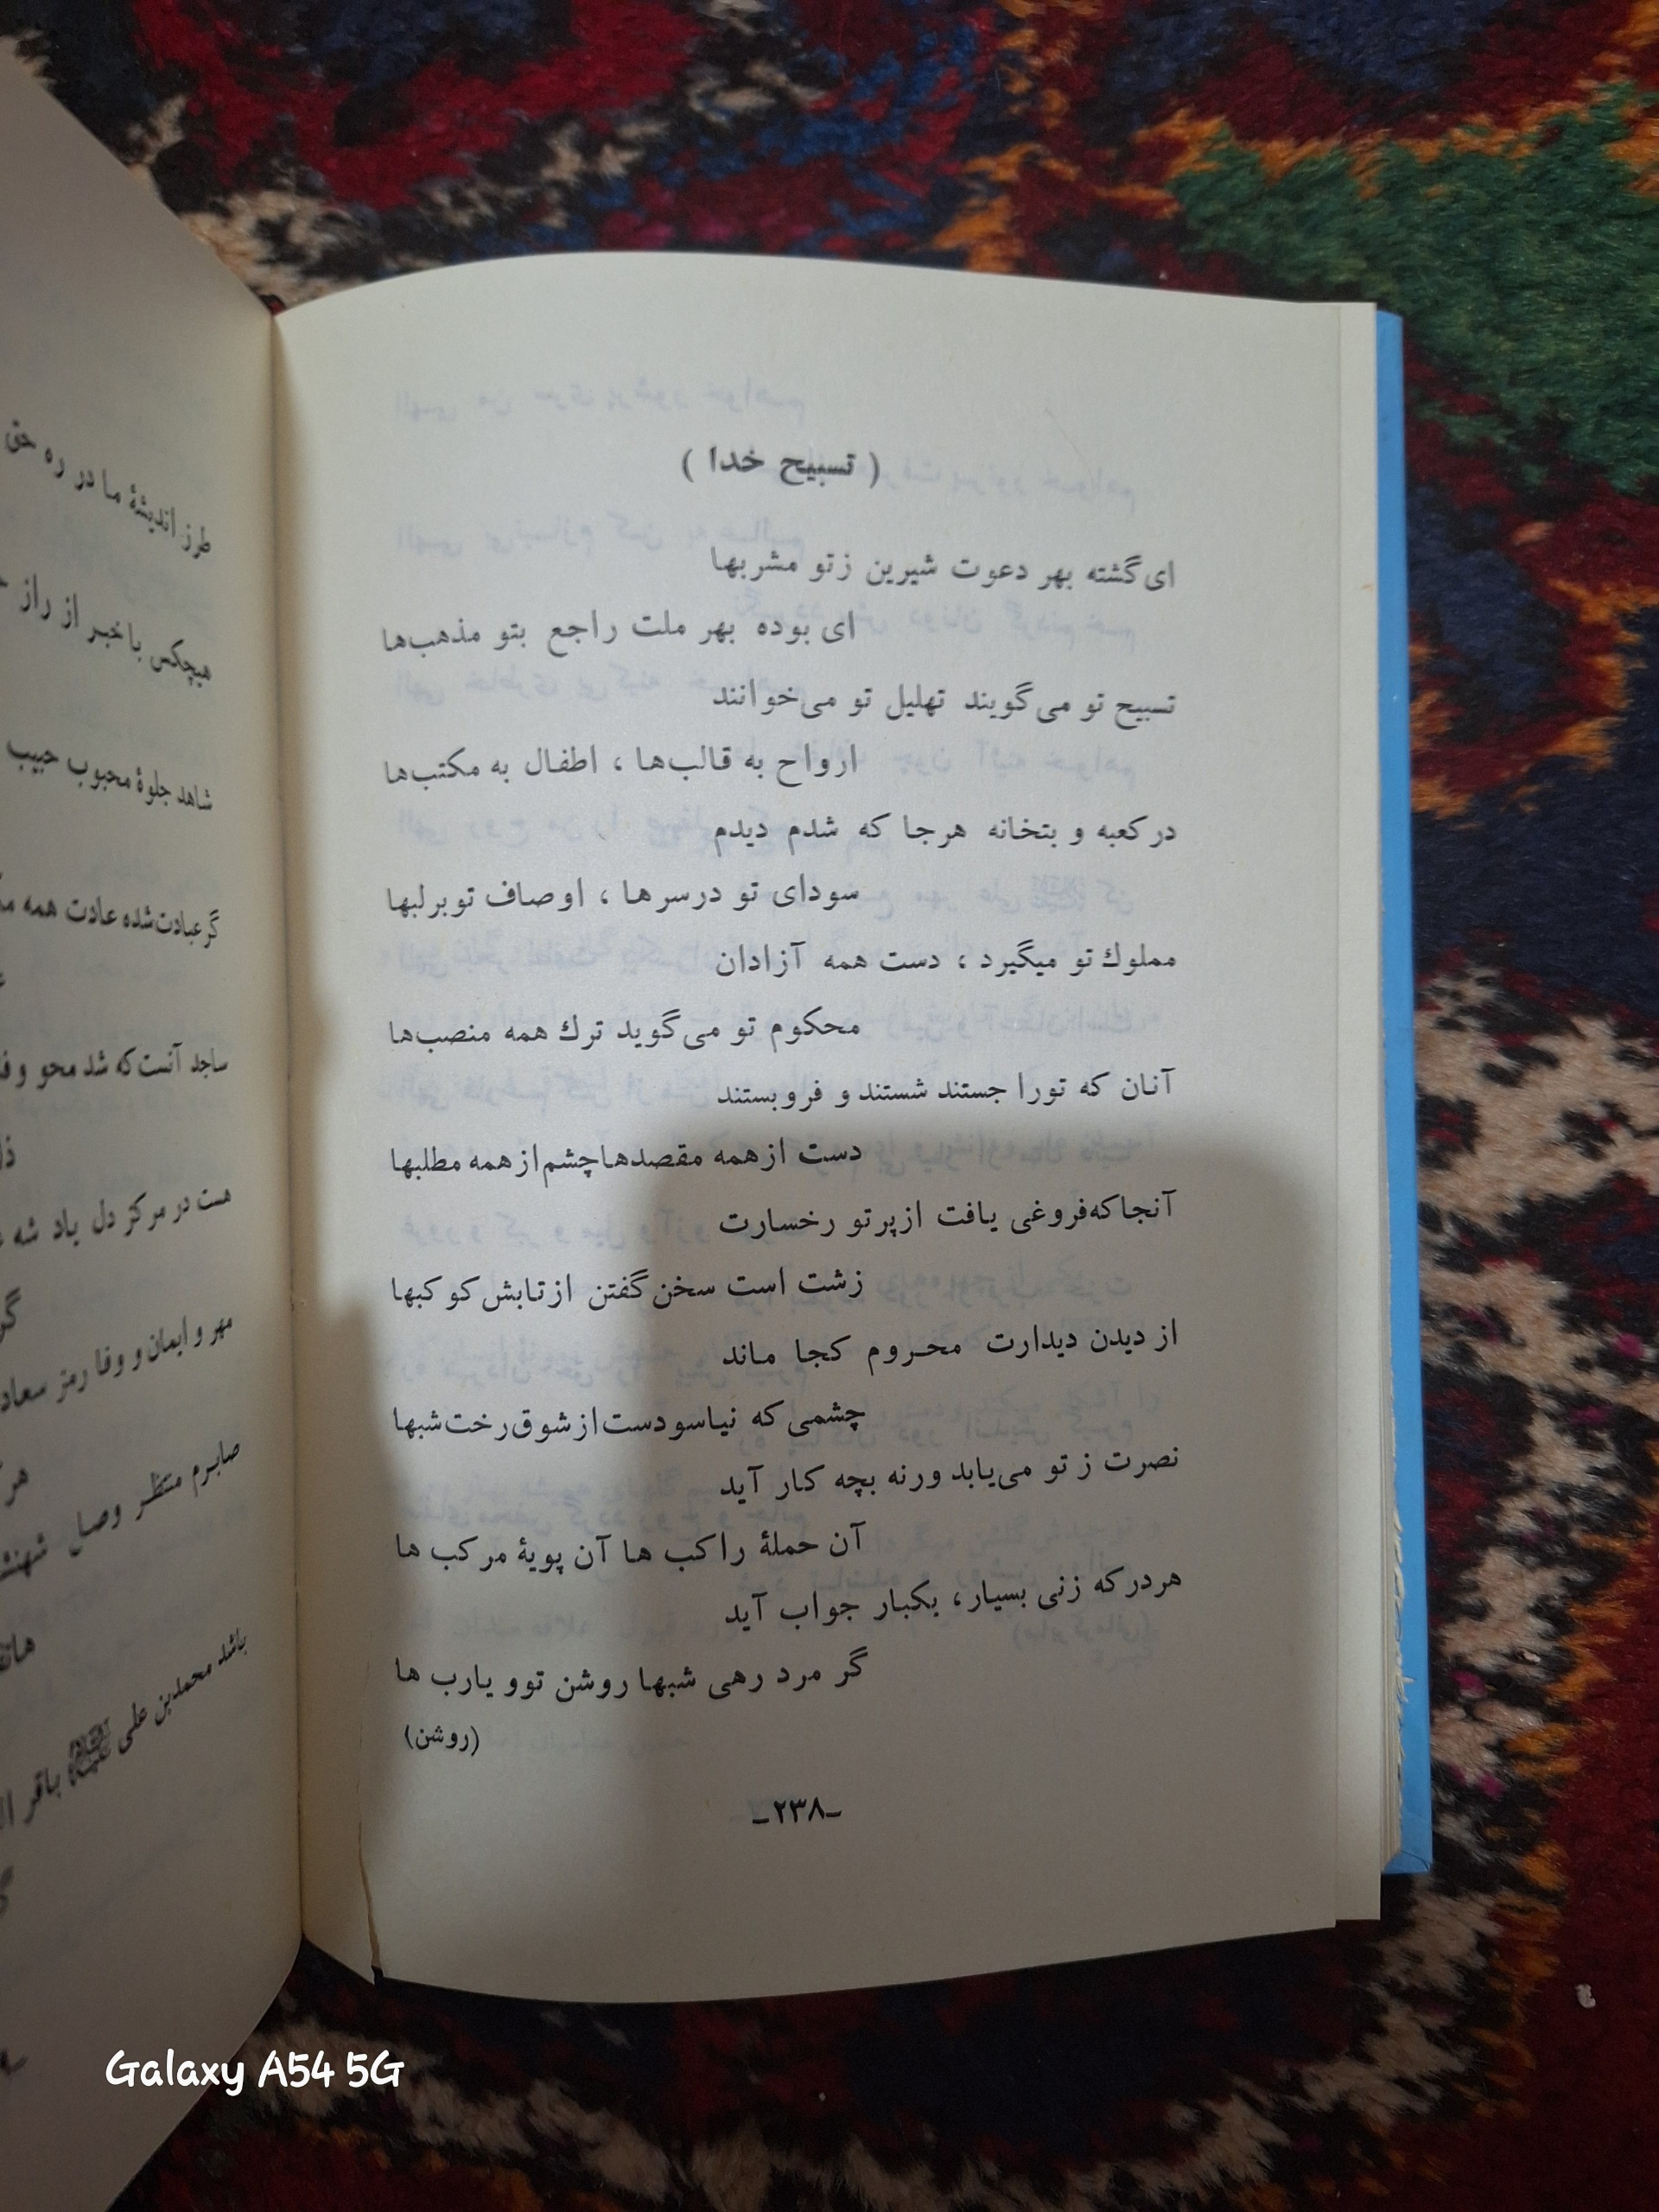 طرز اندیشهٔ ما در ره حق
هیچکس باخبر از راز
شاهد جلوهٔ محبوب حبیب
گر عبادت‌شده عادت همه
ساجد آنست که شد محو و
هست در مرکز دل یاد شه
مهر و ایمان و وفا رمز
صابرم منتظر وصل
باشد محمدبن علی باقر
( تسبیح خدا )
ای گشته بهر دعوت شیرین ز تو مشربها
ای بوده بهر ملت راجع بتو مذهب‌ها
تسبیح تو می‌گویند تهلیل تو می‌خوانند
ارواح به قالب‌ها ، اطفال به مکتب‌ها
در کعبه و بتخانه هرجا که شدم دیدم
سودای تو درسرها ، اوصاف تو برلبها
مملوك تو میگیرد ، دست همه آزادان
محکوم تو می‌گوید ترك همه منصب‌ها
آنان که تورا جستند شستند و فروبستند
دست از همه مقصدها چشم از همه مطلبها
آنجا که فروغی یافت از پرتو رخسارت
زشت است سخن گفتن از تابش کوکبها
از دیدن دیدارت محروم کجا ماند
چشمی که نیاسودست از شوق رخت شبها
نصرت ز تو می‌یابد ورنه بچه کار آید
آن حملهٔ راکب ها آن پویهٔ مرکب ها
هردر که زنی بسیار، یکبار جواب آید
گر مرد رهی شبها روشن تو و یارب ها
(روشن)
-۲۳۸-
Galaxy A54 5G